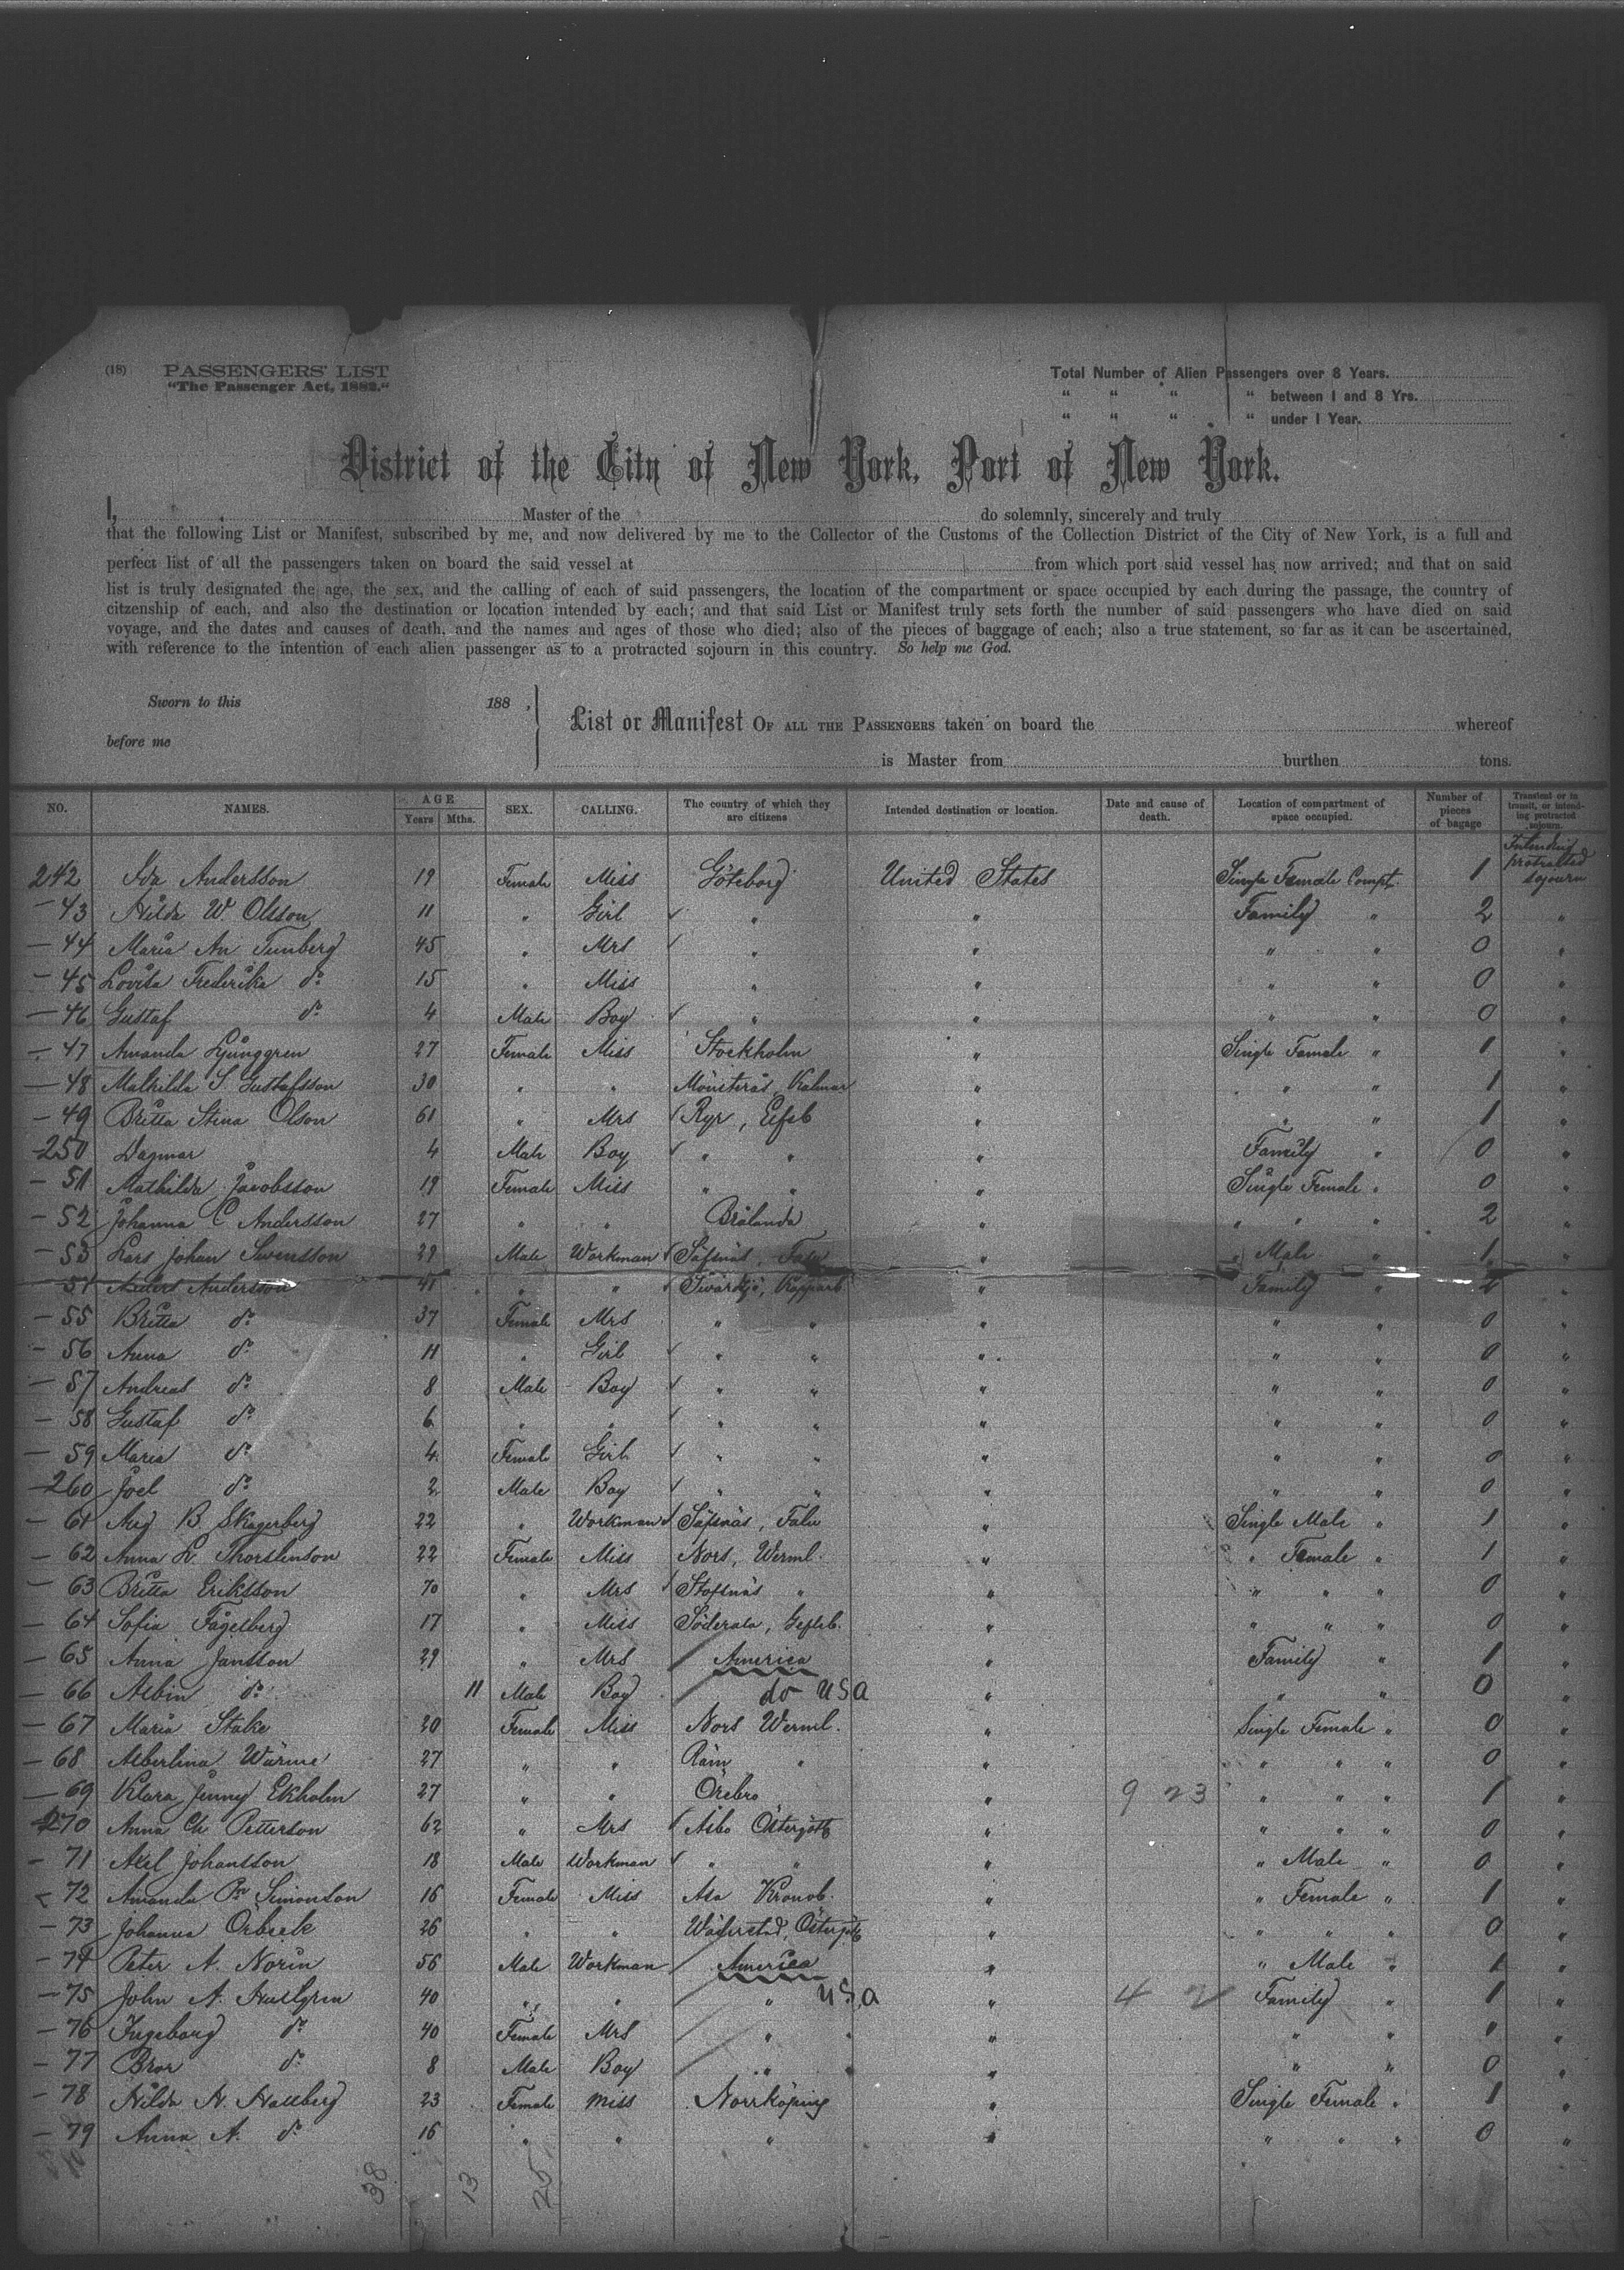 (18) PASSENGERS' LIST
"The Passenger Act, 1882."
Total Number of Alien Passengers over 8 Years.
" " " " between 1 and 8 Yrs.
" " " " under 1 Year.
District of the City of New York, Port of New York.
I, Master of the do solemnly, sincerely and truly
that the following List or Manifest, subscribed by me, and now delivered by me to the Collector of the Customs of the Collection District of the City of New York, is a full and
perfect list of all the passengers taken on board the said vessel at from which port said vessel has now arrived; and that on said
list is truly designated the age, the sex, and the calling of each of said passengers, the location of the compartment or space occupied by each during the passage, the country of
citzenship of each, and also the destination or location intended by each; and that said List or Manifest truly sets forth the number of said passengers who have died on said
voyage, and the dates and causes of death, and the names and ages of those who died; also of the pieces of baggage of each; also a true statement, so far as it can be ascertained,
with reference to the intention of each alien passenger as to a protracted sojourn in this country. So help me God.
Sworn to this 188 ,
before me
List or Manifest OF ALL THE PASSENGERS taken on board the whereof
is Master from burthen tons.
NO. NAMES. AGE Years Mths. SEX. CALLING. The country of which they are citizens Intended destination or location. Date and cause of death. Location of compartment of space occupied. Number of pieces of bagage Transient or in transit, or intending protracted sojourn.
242 Ida Andersson 19 Female Miss Göteborg United States Single Female Compt. 1 Intending protracted sojourn
43 Hilda W. Olsson 11 " Girl " " Family " 2 "
44 Maria An Tunberg 45 " Mrs " " " " 0 "
45 Lovisa Frederika do 15 " Miss " " " " 0 "
46 Gustaf do 4 Male Boy " " " " 0 "
47 Amanda Ljunggren 27 Female Miss Stockholm " Single Female " 1 "
48 Mathilda S. Gustafsson 30 " " Mönsterås Kalmar " " " 1 "
49 Britta Stina Olson 61 " Mrs Ryr, Elfsb " " " 1 "
250 Dagmar 4 Male Boy " " " Family " 0 "
51 Mathilda Jacobsson 19 Female Miss " " " Single Female " 0 "
52 Johanna C Andersson 27 " " Brålanda " " " " 2 "
53 Lars Johan Swensson 29 Male Workman Säfsnäs, Falu " " Male " 1 "
54 Anders Andersson 41 " " Kopparb " Family " "
55 Britta do 37 Female Mrs " " " " " 0 "
56 Anna do 11 " Girl " " " " " 0 "
57 Andreas do 8 Male Boy " " " " " 0 "
58 Gustaf do 6 " " " " " " " 0 "
59 Maria do 4 Female Girl " " " " " 0 "
260 Joel do 2 Male Boy " " " " " 0 "
61 Aug B Skagerberg 22 " Workman Säfsnäs, Falu " Single Male " 1 "
62 Anna L. Thorstenson 22 Female Miss Nors, Werml. " " Female " 1 "
63 Britta Eriksson 70 " Mrs " " " " " 0 "
64 Sofia Fagelberg 17 " Miss Söderala, Gefleb. " " " " 0 "
65 Anna Jansson 29 " Mrs America " Family " 1 "
66 Albin do 11 Male Boy do USA " " " 0 "
67 Maria Stake 20 Female Miss Nors Werml. " Single Female " 0 "
68 Albertina Wärme 27 " " " " " " " 0 "
69 Klara Jenny Ekholm 27 " " Örebro " 9 23 " " " 1 "
270 Anna Ch Petterson 62 " Mrs Åsbo Östergötl " " " " 0 "
71 Axel Johansson 18 Male Workman " " " " Male " 0 "
72 Amanda Simonson 16 Female Miss Asa Kronob. " " Female " 1 "
73 Johanna 26 " " Wäderstad, Östergötl " " " " 0 "
74 Peter A. Norin 56 Male Workman America " " Male " 1 "
75 John A. 40 " " " USA " 4 2 Family " 1 "
76 Ingeborg do 40 Female Mrs " " " " " "
77 Bror do 8 Male Boy " " " " 0 "
78 Hilda H. Hallberg 23 Female Miss Norrköping " Single Female " 1 "
79 Anna A. do 16 " " " " " " " 0 "
38 13 25